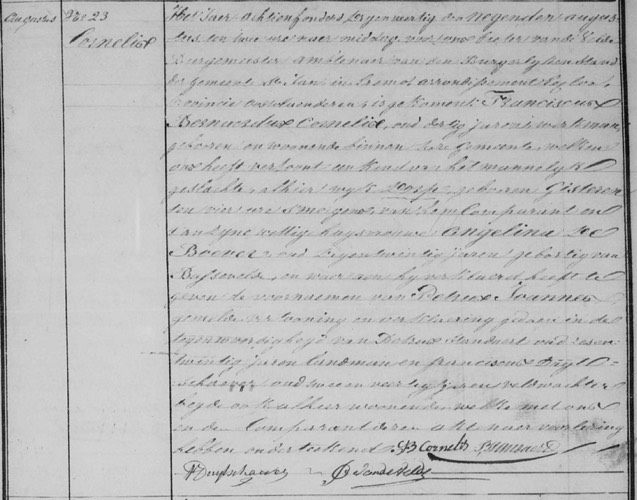 augustus
N.r 23
Cornelis
Het Jaer achtienhonderd zegenentwintig den negenden augus-
tus ten twee uren naer middag, voor ons Pieter van de Velde
Burgemeester ambtenaer van den Burgerlyken Stand
der gemeente St Jan in Eremo arrondissement Eecloo
Provincie oostvlanderen is gekomen Franciscus
Bernardus Cornelis, oud dertig jaren werkman
geboren en woonende binnen deze Gemeente, welken
ons heeft vertoont een kind van het mannelyk
geslacht, alhier wyk Dorp, geboren Gisteren
ten vier uren s'morgens, van hem Comparant en
van zyne wettige huysvrouwe Angelina De
Boever oud zegentwintig jaren geboortig van
Bassevelde, en waer aen hy verklaerd heeft te
geven de voornaemen van Petrus Joannes
gemelde vertooning en verklaering gedaen in de
tegenwoordigheyd van Petrus Standaert oud
twintig jaren landman en franciscus Buyt-
schaever oud twee en veertig jaren veldwachter
beyde ook alhier woonende, welke met ons
en de Comparant deze akte naer voorlezing
hebben onderteekend. FB Cornelis
Buytschaever P Vande Velde